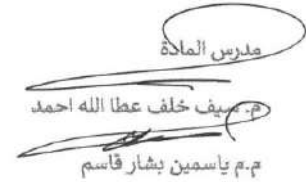 مدرس المادة
م. سيف خلف عطا الله احمد
م.م ياسمين بشار قاسم